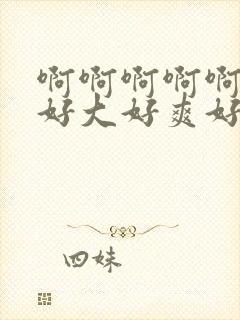 啊啊啊啊啊
好大好爽好
四妹